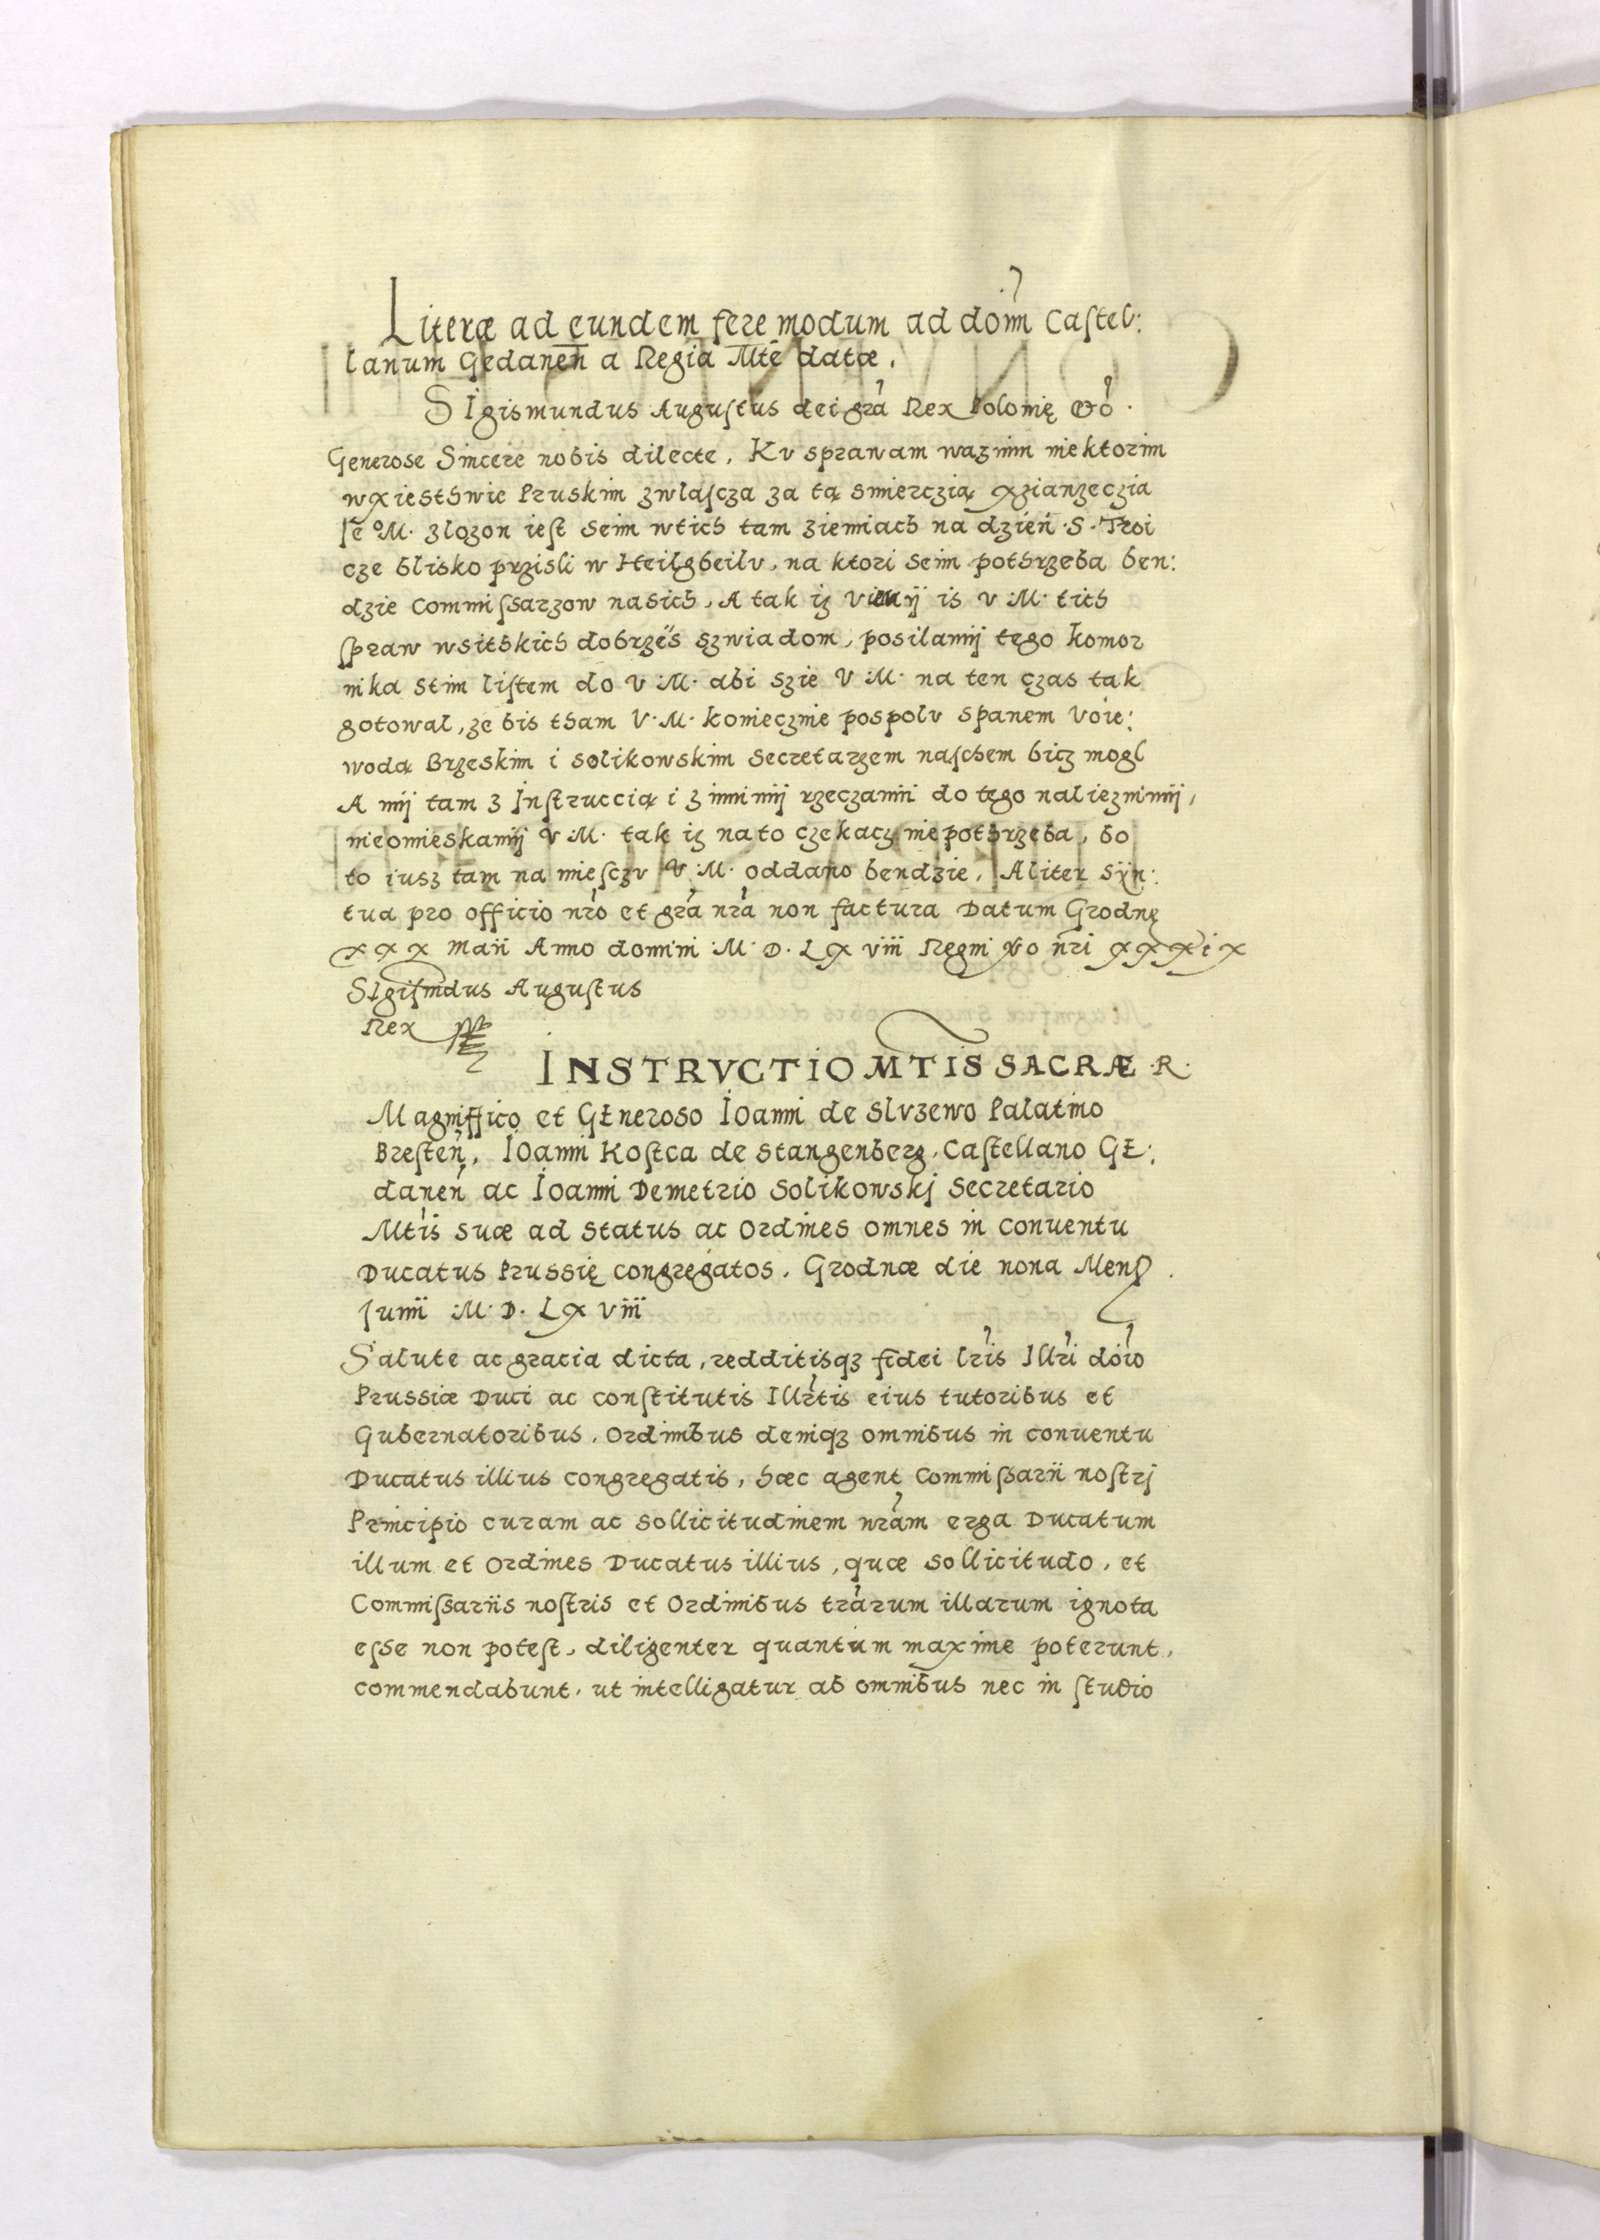 Literæ ad eundem fere modum ad doim Castel:
lanum Gedanen a Regia Mte datæ.
SIgismundus Augustus dei gra Rex Polonię &c.
Generose Sincere nobis dilecte, Kv sprawam waznim niektorim
wxiesthwie Pruskim zwlascza za tą smierczią xzianzeczia
Je° M. zlozon iest Seim wtich tam ziemiach na dzień S. Troi
cze blisko przisli w Heilgbeilv, na ktori seim pothrzeba ben:
dzie Commissarzow nasich, A tak iz viemij is V.M. tich
spraw wsitskich dobrzes szwiadom, posilamij tego komor
nika stim listem do V.M. abi szie V.M. na ten czas tak
gotowal, ze bis tham V.M. konieczmie pospolv spanem Voie:
wodą Brzeskim i Solikowskim Secretarzem naschem bicz mogl
A mij tam z Instruccią i z innimij rzeczamii do tego nalieznimij,
nieomieskamij V.M. tak iz na to czekacz niepothrzeba, bo
to iusz tam na miesczv V.M. oddano bendzie, Aliter Syn:
tua pro officio nro et gra nra non factura Datum Grodnę
xxx Maii Anno domini M.D.Lxviii Regni vo nri xxxix
SIgismdus Augustus
Rex
INSTRVCTIO MTIS SACRÆ .R.
Magniffico et GEneroso Ioanni de Slvzewo Palatino
Bresteń, IOanni Kostca de Stangenberg, Castellano GE:
daneń ac Ioanni Demetrio Solikowskj Secretario
Mtis suæ ad status ac Ordines omnes in conuentu
Ducatus Prussię congregatos, Grodnæ die nona Mens
Junii M.D.Lxviii
Salute ac gracia dicta, redditisqz fidei lris Illri doio
Prussiæ Duci ac constitutis Illrtis eius tutoribus et
Gubernatoribus, Ordinibus deniqz omnibus in conuentu
Ducatus illius congregatis, hæc agent Commissarii nostrj
Principio curam ac sollicitudinem nram erga Ducatum
illum et Ordines Ducatus illius, quæ sollicitudo, et
Commissariis nostris et Ordinibus trarum illarum ignota
esse non potest, diligenter quantum maxime poterunt,
commendabunt, ut intelligatur ab omnibus nec in studio